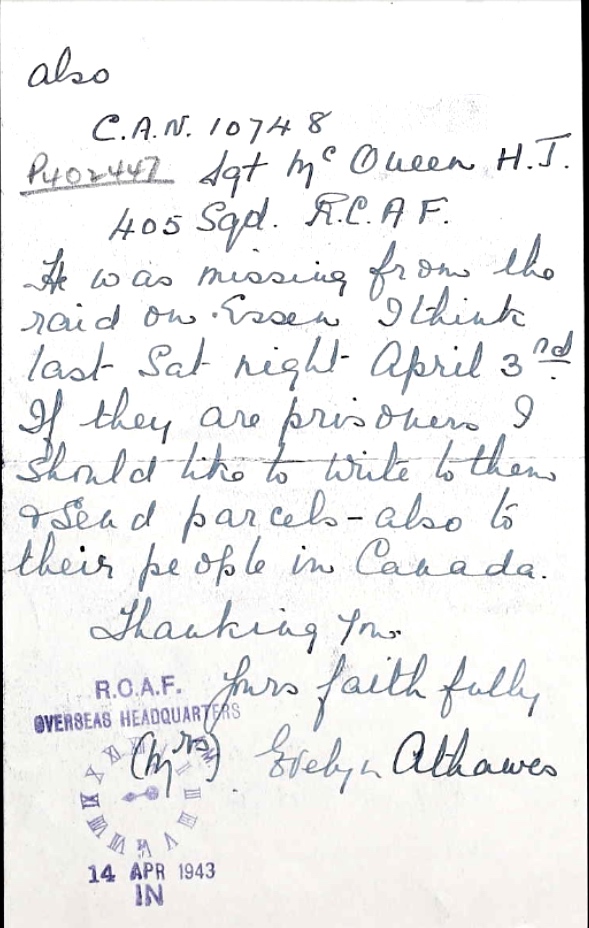 also
C.A.N. 10748
P402447 Sgt Mc Queen H.J.
405 Sqd. R.C.A.F.
He was missing from the
raid on Essen I think
last Sat night April 3rd.
If they are prisoners I
should like to write to them
& send parcels - also to
their people in Canada.
Thanking You.
Yours faithfully
(Mrs) Evelyn Athawes
R.C.A.F.
OVERSEAS HEADQUARTERS
14 APR 1943
IN